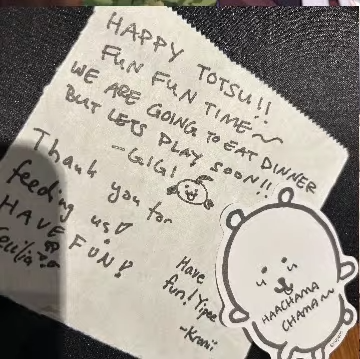 HAPPY TOTSU!!
FUN FUN TIME~
WE ARE GOING TO EAT DINNER
BUT LETS PLAY SOON!!
-GIGI
Thank you for
feeding us!
HAVE FUN!
Cecilia
Have
fun! Yipee
-Kroni
HAACHAMA
CHAMA~